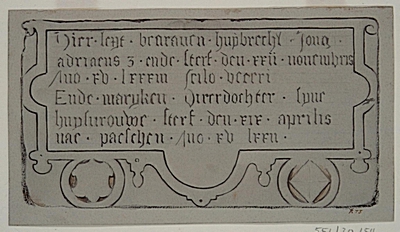 Hier · leyt · begraven · huybrecht · Jong
adriaens z · ende · sterf · den · xxii · novembris
Ano · xv · lxxxiii stilo · veteri
Ende · maryken · Pieterdochter · syne
huysvrouwe · sterf · den · xix · aprilis
nae · paeschen · Ano · xv · lxxii ·